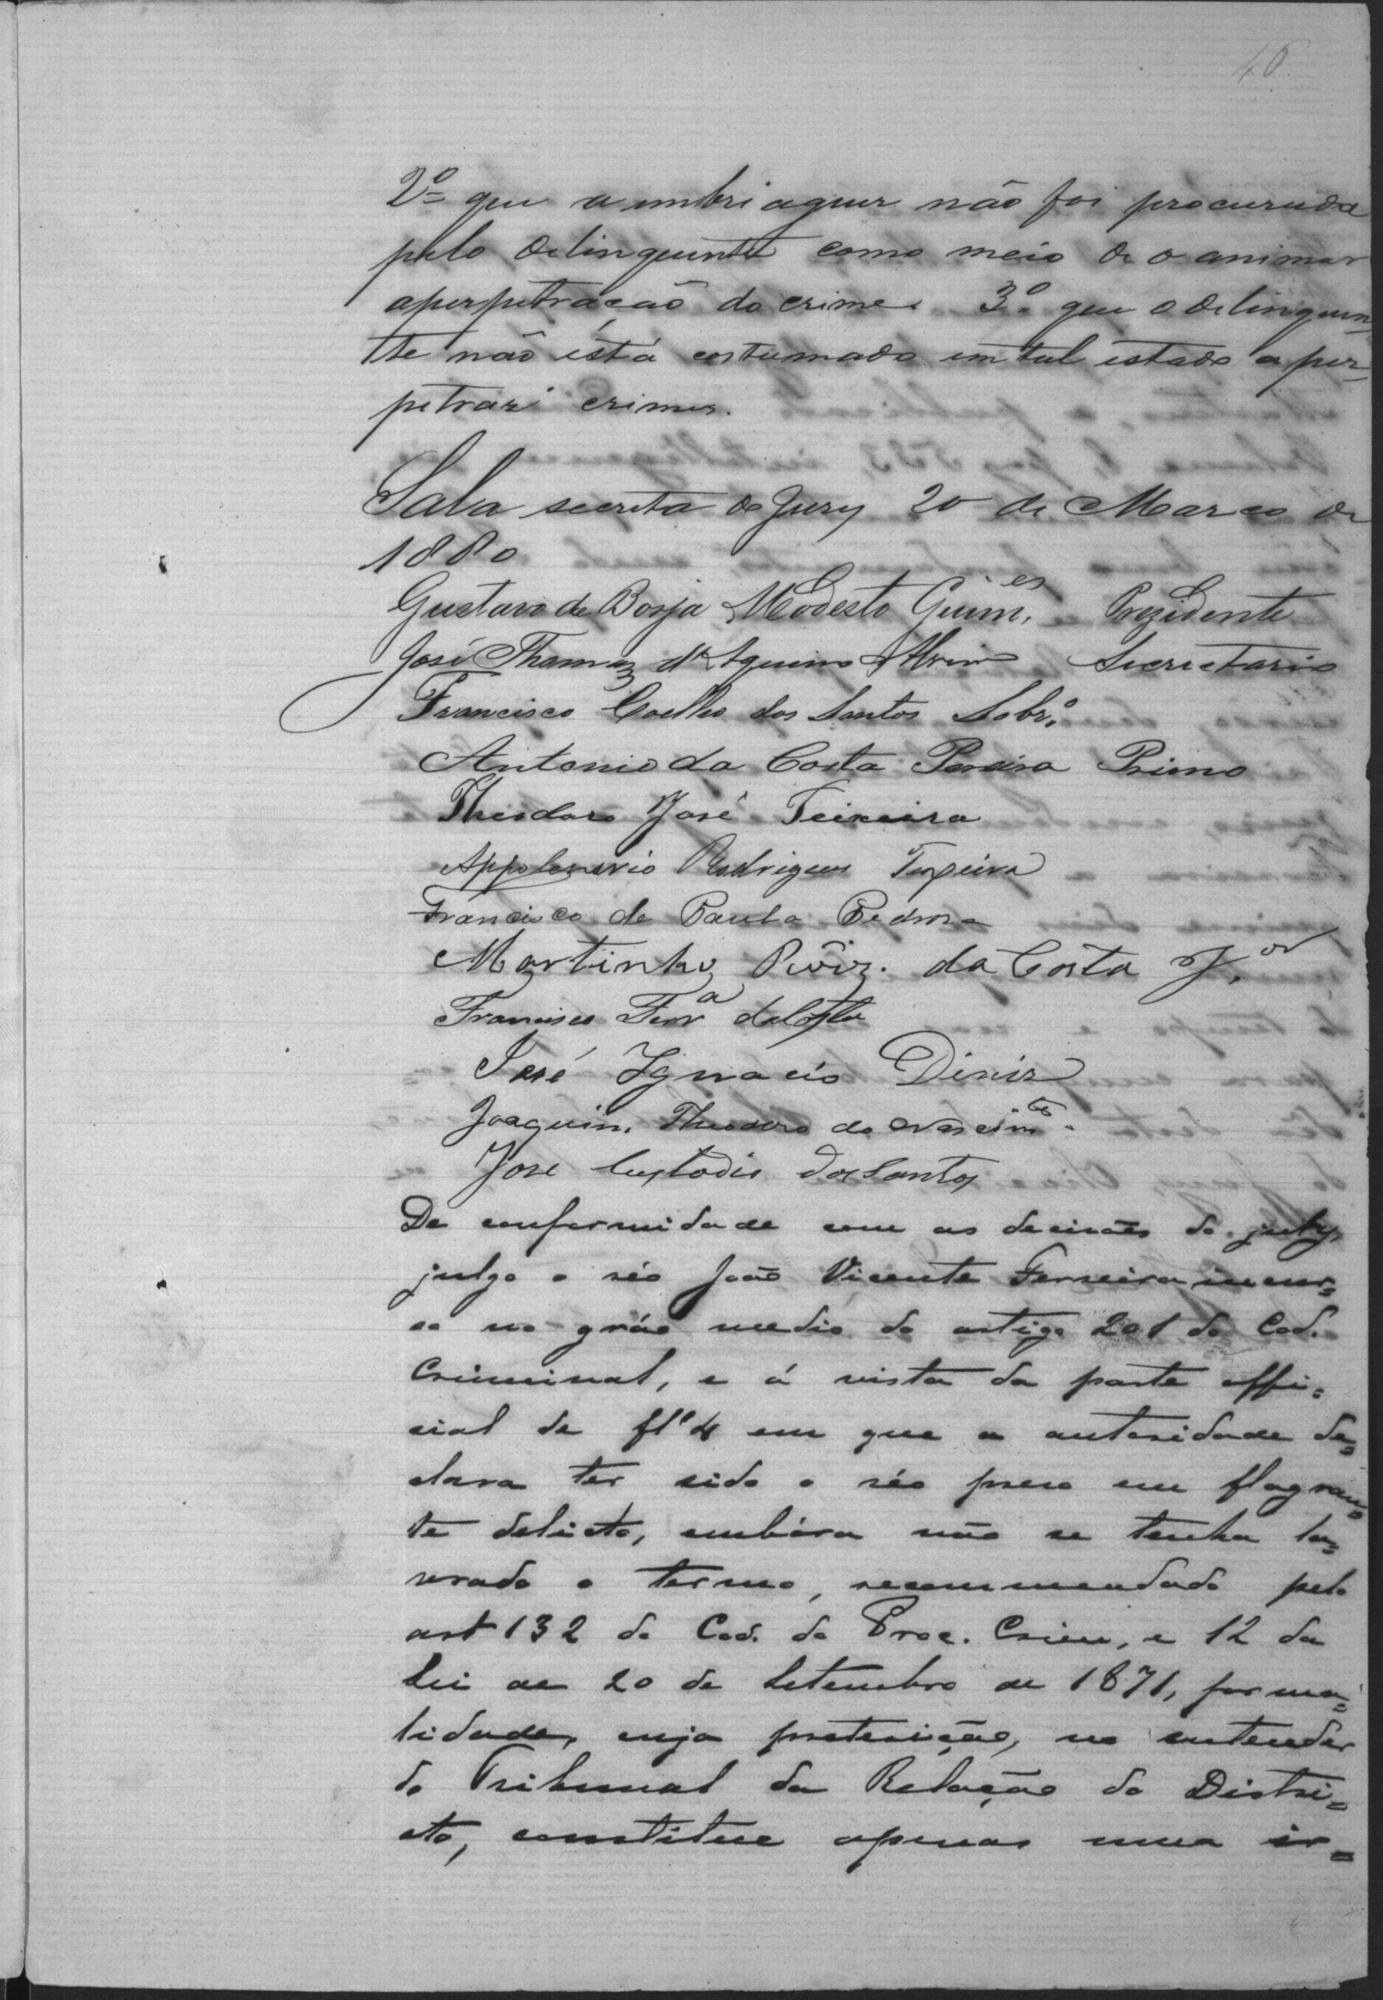 46
2º que a embriaguez não foi procurada
pelo delinquente como meio de o animar
a perpetração do crime. 3º que o delinquen-
te não está costumado em tal estado a per-
petrar crimes.
Sala secreta do Jury 20 de Março de
1880
Gustavo de Borja Modesto Guim.es Prezidente
José Thomaz d'Aquino Alvim Secretario
Francisco Coelho dos Santos Sobr.o
Antonio da Costa Pereira Primo
Theodoro José Teixeira
Appolenario Rodrigues Teixeira
Francisco de Paula Pedroza
Martinho Roiz. da Costa J.or
Francisco Ferr.a da Costa
José Ignacio Diniz
Joaquim Theodoro do Nascim.to
José Custodio dos Santos
De conformidade com as decisões do jury,
julgo o réo João Vicente Ferreira incur=
so no gráo medio do artigo 201 do Cod.
Criminal, e á vista da parte offi=
cial de fl. 4 em que a autoridade de=
clara ter sido o réo preso em flagran=
te delicto, embóra não se tenha la=
vrado o termo, recommendado pelo
art 132 do Cod. do Proc. Crim, e 12 da
Lei de 20 de Setembro de 1871, forma=
lidade, cuja preterição, no entender
do Tribunal da Relação do Distri=
cto, constitue apenas uma ir=